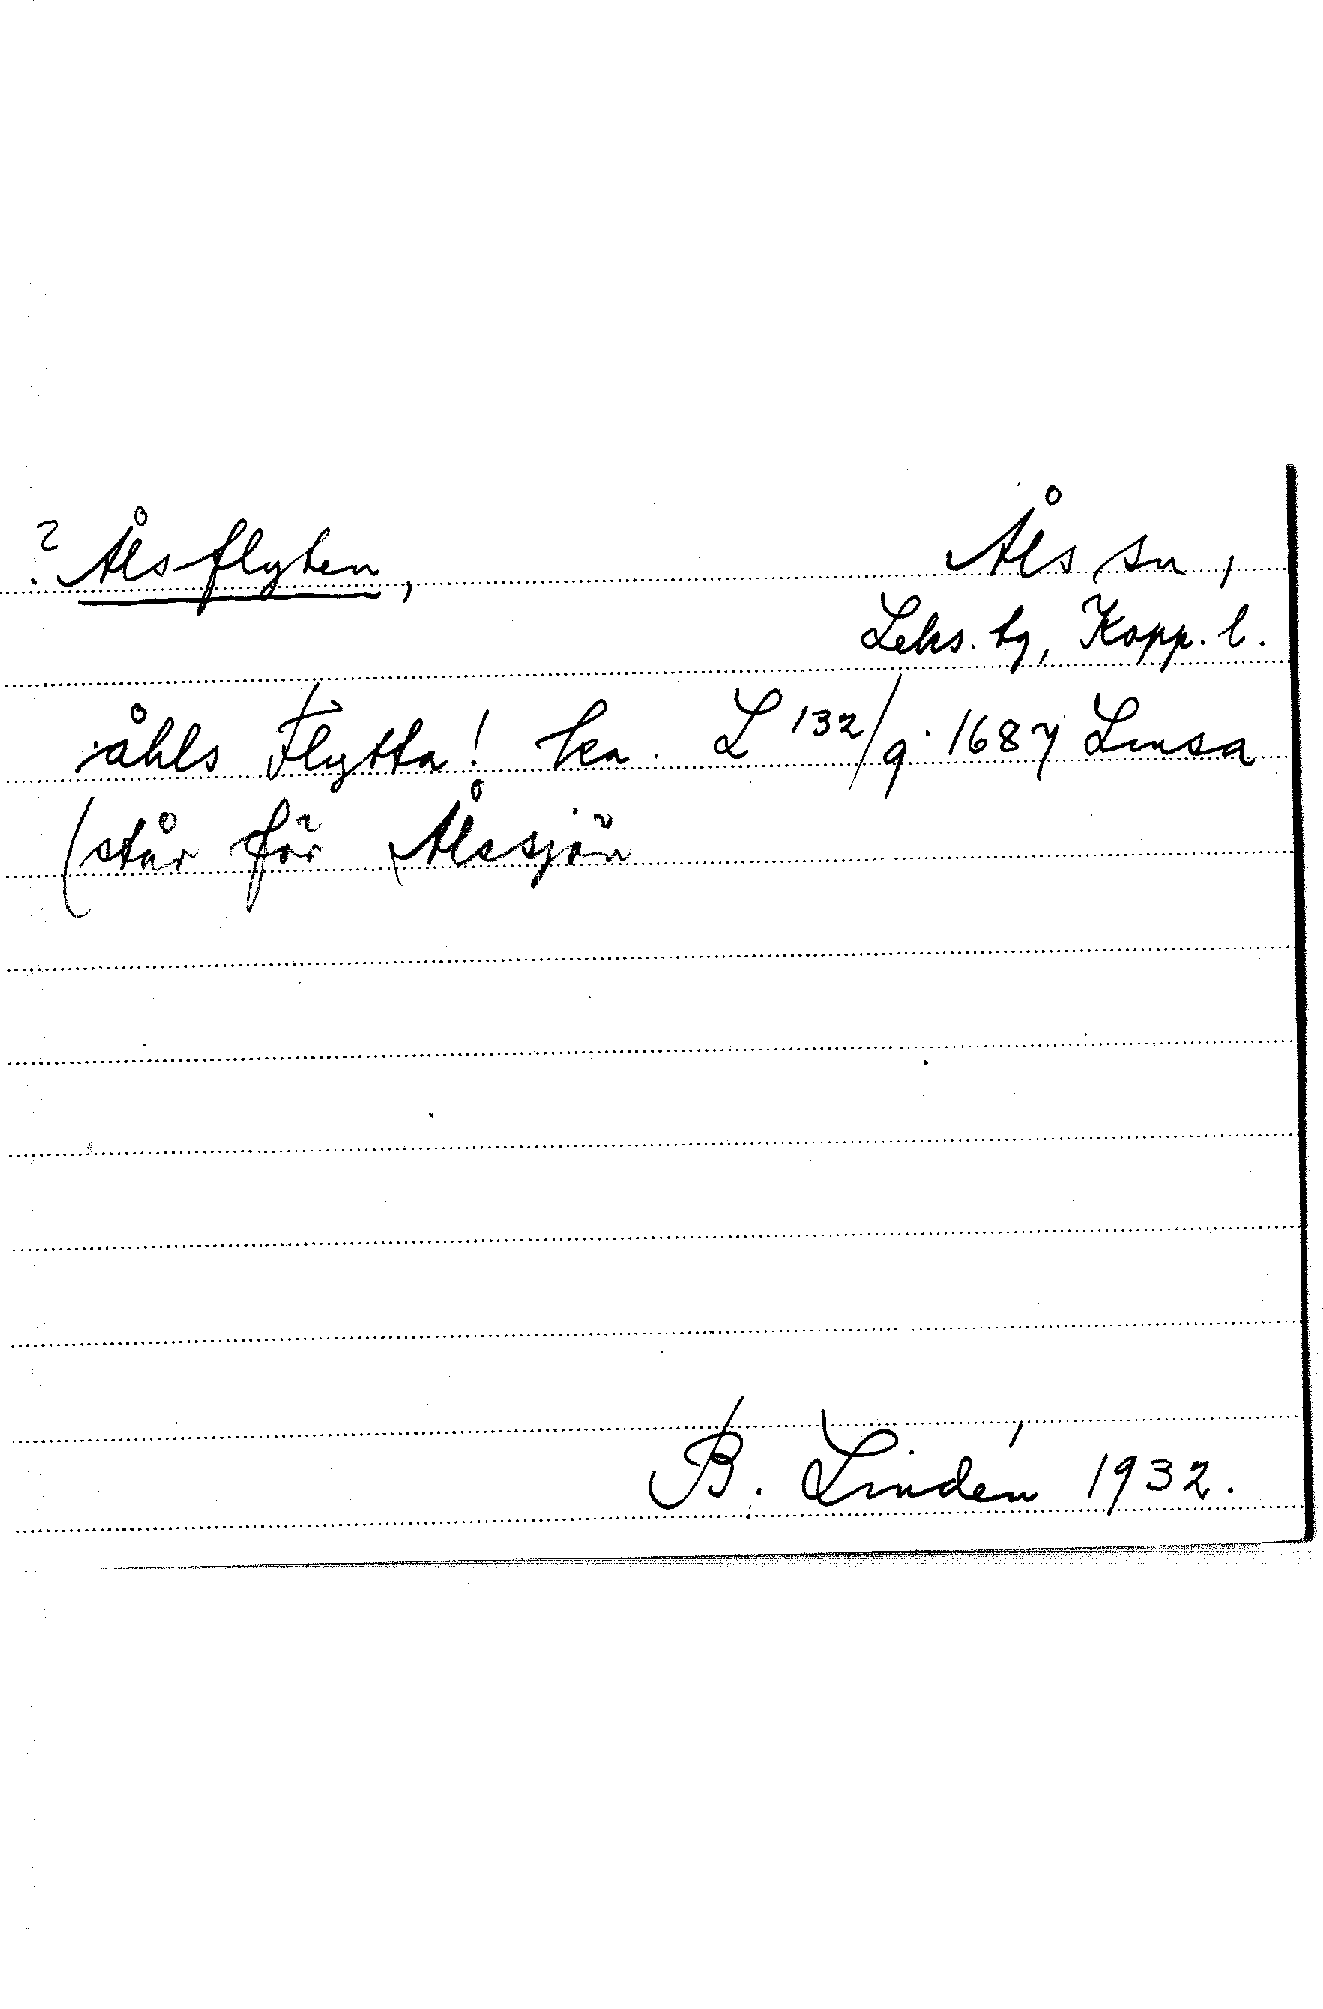 ? Ålsflyten, Åls sn,
Leks. tg, Kopp. l.
åhls Flytta! ka. L 132/9. 1687 Linsa
(står för Ålssjön
B. Lindén 1932.